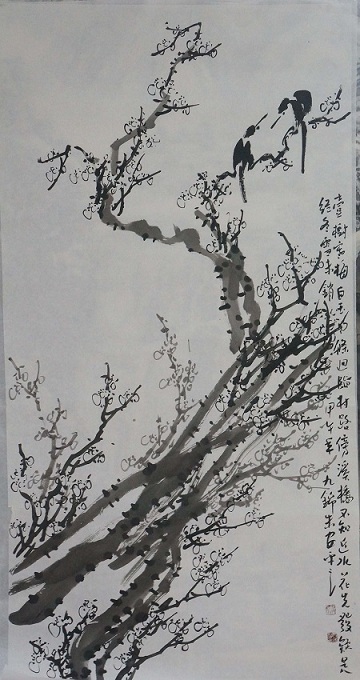 壹樹寒梅白玉條迥臨村路傍溪橋不知近水花先發疑是
經冬雪未銷 甲午年